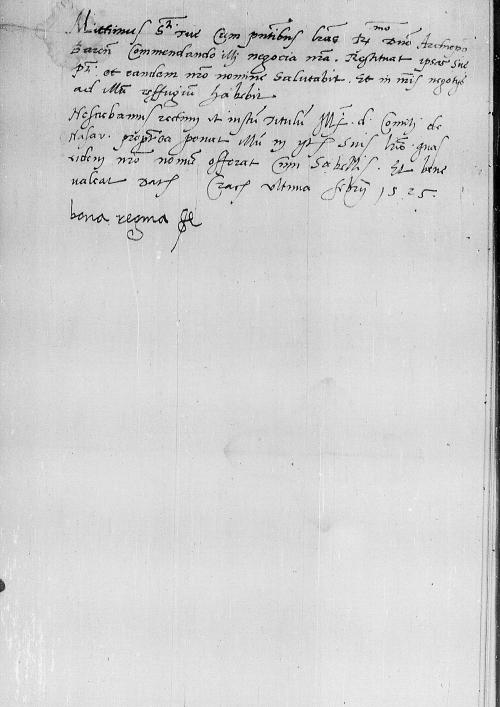 Mittimus S. tue cum pntibus lras R mo Dno Archiepo
Baren Commendando illi negocia nra. Restituat ipsas Sue
P. et eandem nro nomine salutabit. Et in nris negotijs
ad illu reffugiu habebit
Nesciebamus rectum et iustu titulu Ill. d. Comitis de
Nasav. propterea ponat illu in Suis lris quas
eidem nro nomine offerat cum Et bene
valeat Dat Crac ultima febrij 1525.
bona regina